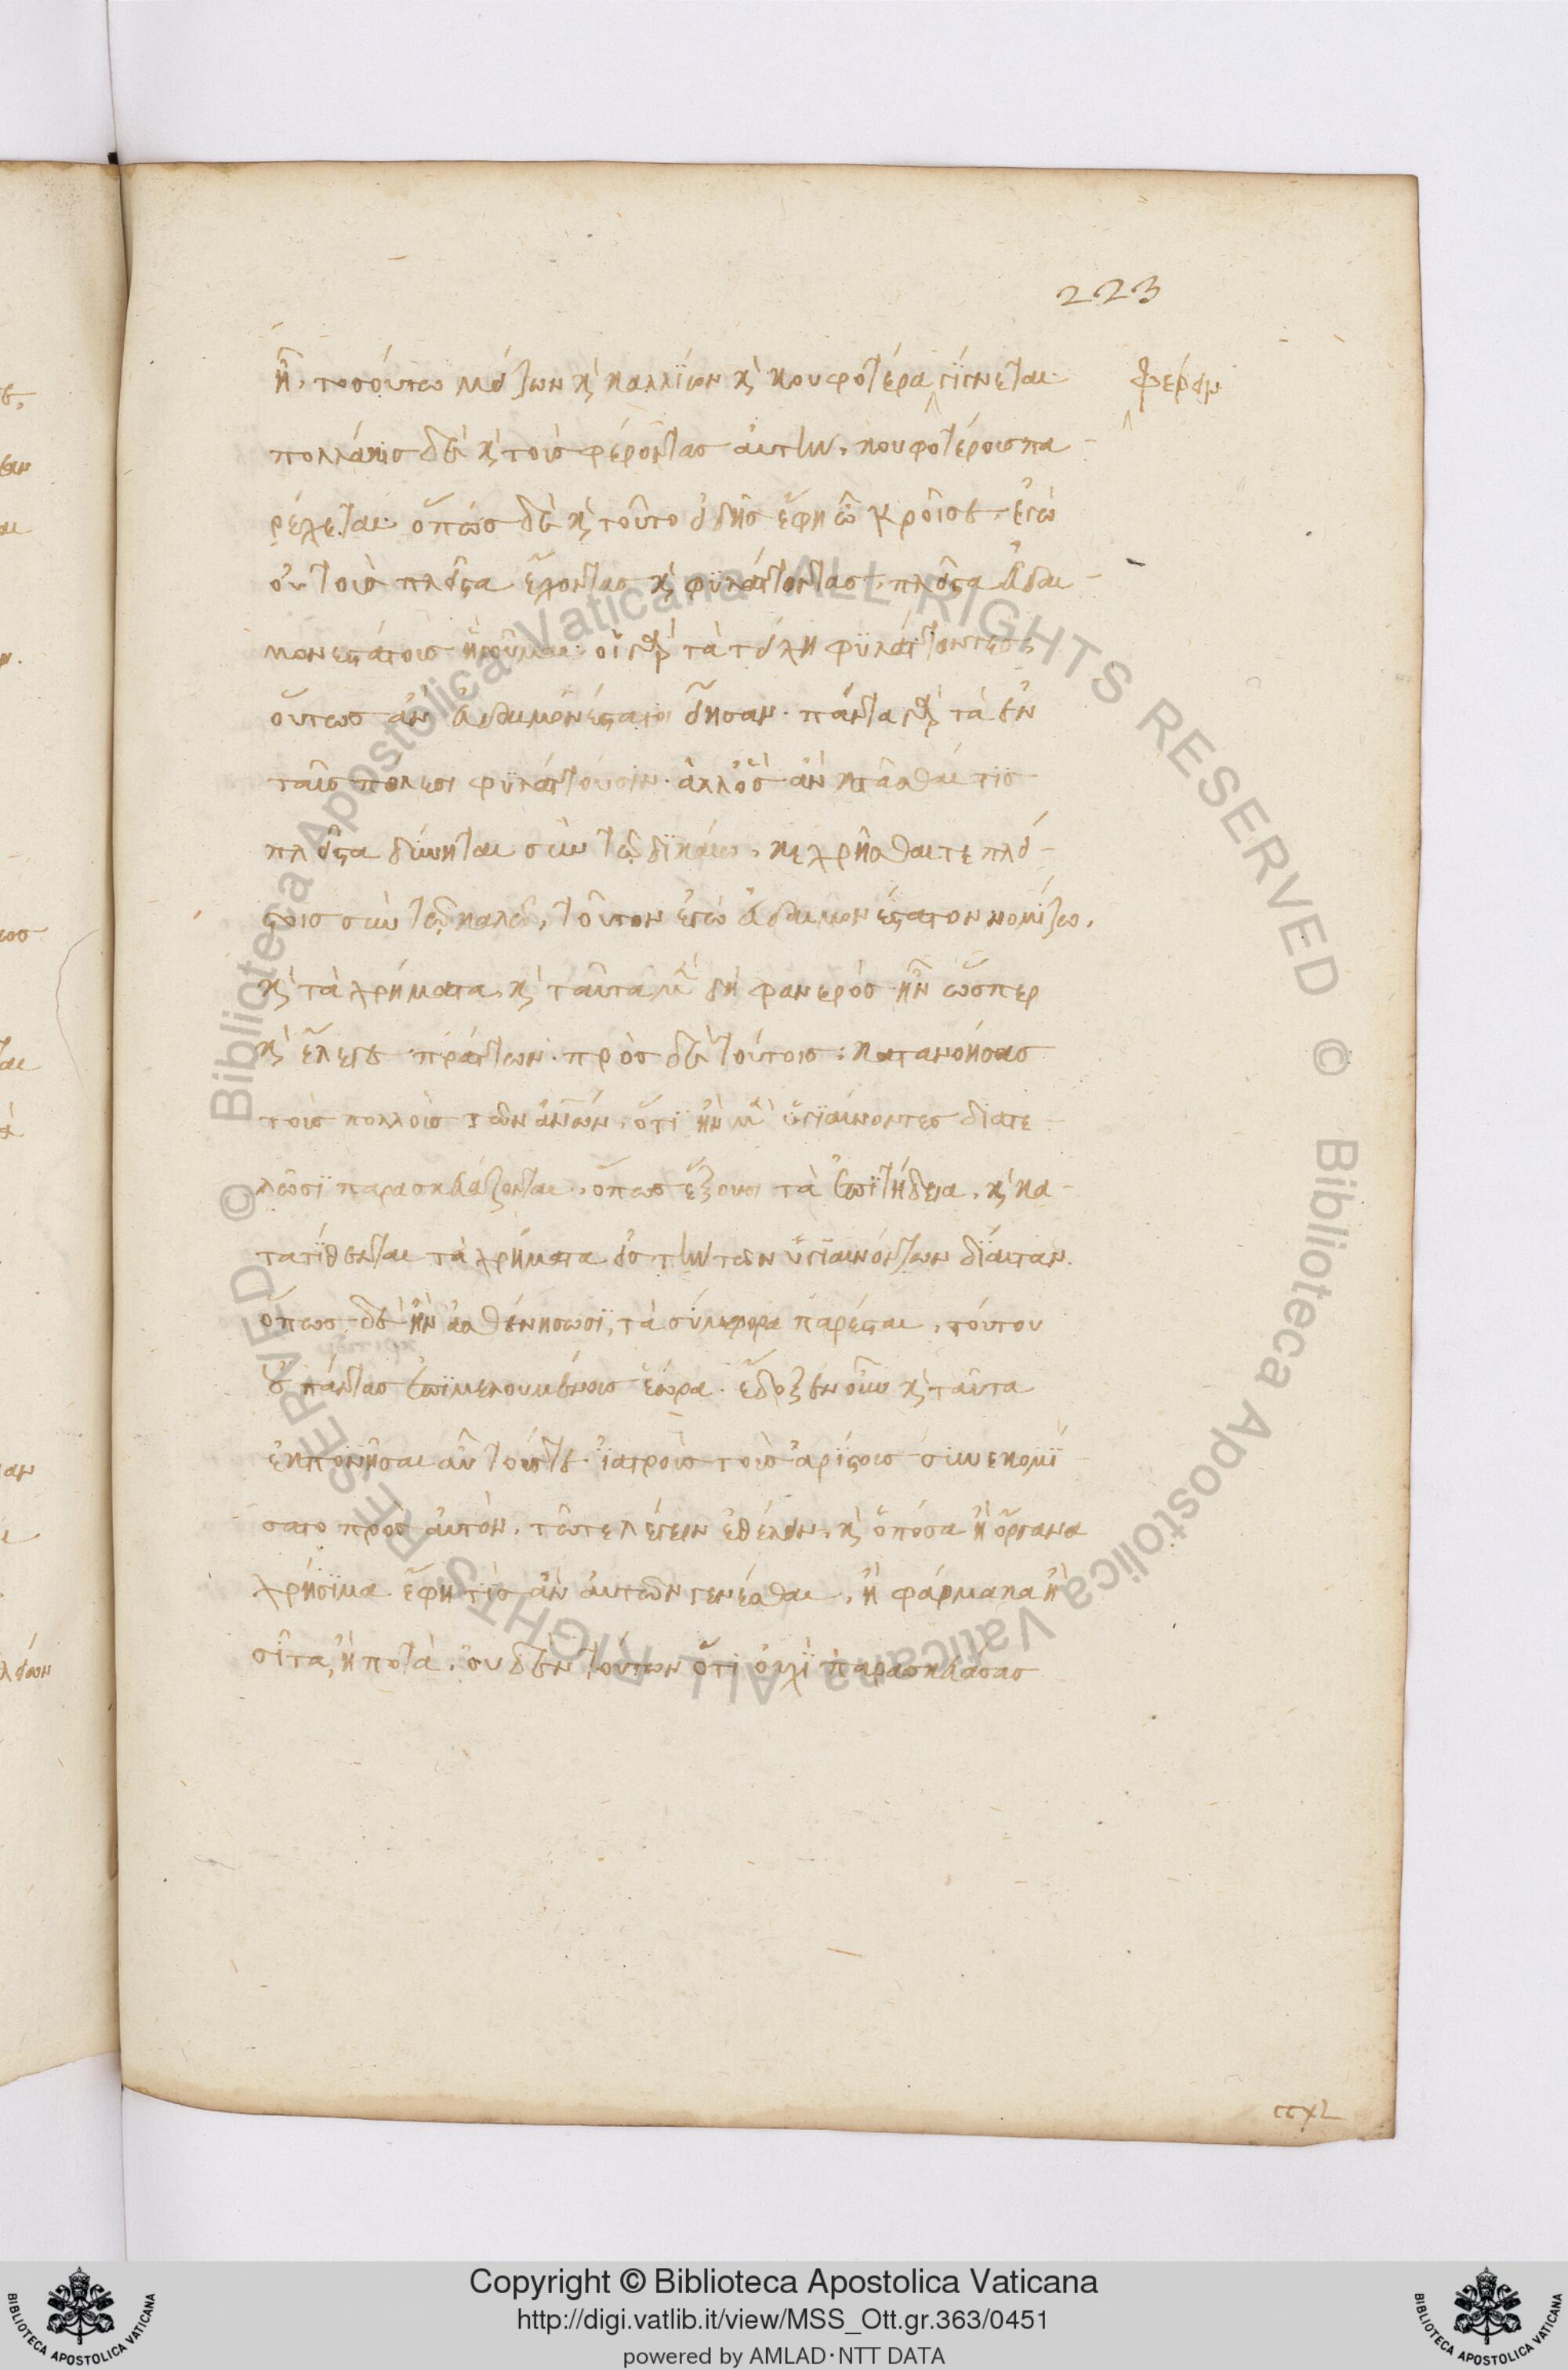 223
ἦ, τοσούτω μείζων κ καλλίων κ κουφοτέρα γίγνεται φέρειν
πολλάκισ δὲ κ τοὺσ φέροντασ αὐτὴν, κουφοτέρουσ πα-
ρέχεται ὅπωσ δὲ κ τοῦτο εἰδῆσ ἔφη ὦ κροῖσε, ἐγὼ
οὐ τοὺσ πλεῖστα ἔχοντασ κ φυλάττοντασ, πλεῖστα εὐδαι-
μονεστάτουσ ἡγοῦμαι οἱ γὰρ τὰ τείχη φυλάττοντεσ,
οὕτωσ ἂν εὐδαιμονέστατοι εἴησαν. πάντα γὰρ τὰ ἐν
ταῖσ πόλεσι φυλάττουσιν. ἀλλ' ὃσ ἂν κτᾶσθαί τισ
πλεῖστα δύνηται σὺν τῶ δικαίω, κεχρῆσθαι τε πλεί-
στοισ σὺν τῶ καλῶ, τοῦτον ἐγὼ εὐδαιμονέστατον νομίζω.
κ τὰ χρήματα, κ ταῦτα μὲν δὴ φανερὸσ ἦν ὥσπερ
κ ἔλεγε πράττων. πρὸσ δὲ τούτοισ: κατανοήσασ
τοὺσ πολλοὺσ τῶν ἀνων, ὅτι ἢν μὲν ὑγιαίνοντεσ διατε-
λῶσι παρασκευάζονται, ὅπωσ ἕξουσι τὰ ἐπιτήδεια, κ κα-
τατίθενται τὰ χρήματα εἰσ τὴν τῶν ὑγιαινόντων δίαιταν.
ὅπωσ δὲ ἢν ἀσθενήσωσι, τὰ σύμφορα παρέσται, τούτου
οὐ πάντασ ἐπιμελουμένουσ ἑώρα. ἔδοξεν οὖν κ ταῦτα
ἐκπονῆσαι αὐτοῦ τε ἰατροὺσ τοὺσ ἀρίστουσ συνεκομί
σατο πρὸσ αὐτὸν, τῶ τελέγειν ἐθέλειν, κ ὁπόσα ἢ ὄργανα
χρήσιμα ἔφη τισ ἂν αὐτῶν γενέσθαι, ἢ φάρμακα ἢ
σῖτα, ἢ ποτὰ, οὐδὲν τούτων ὅτι οὐχὶ παρασκευάσασ
ccxL
Copyright © Biblioteca Apostolica Vaticana
http://digi.vatlib.it/view/MSS_Ott.gr.363/0451
powered by AMLAD·NTT DATA
BIBLIOTECA APOSTOLICA VATICANA
BIBLIOTECA APOSTOLICA VATICANA
© Biblioteca Apostolica Vaticana ALL RIGHTS RESERVED © Biblioteca Apostolica Vaticana ALL RIGHTS RESERVED